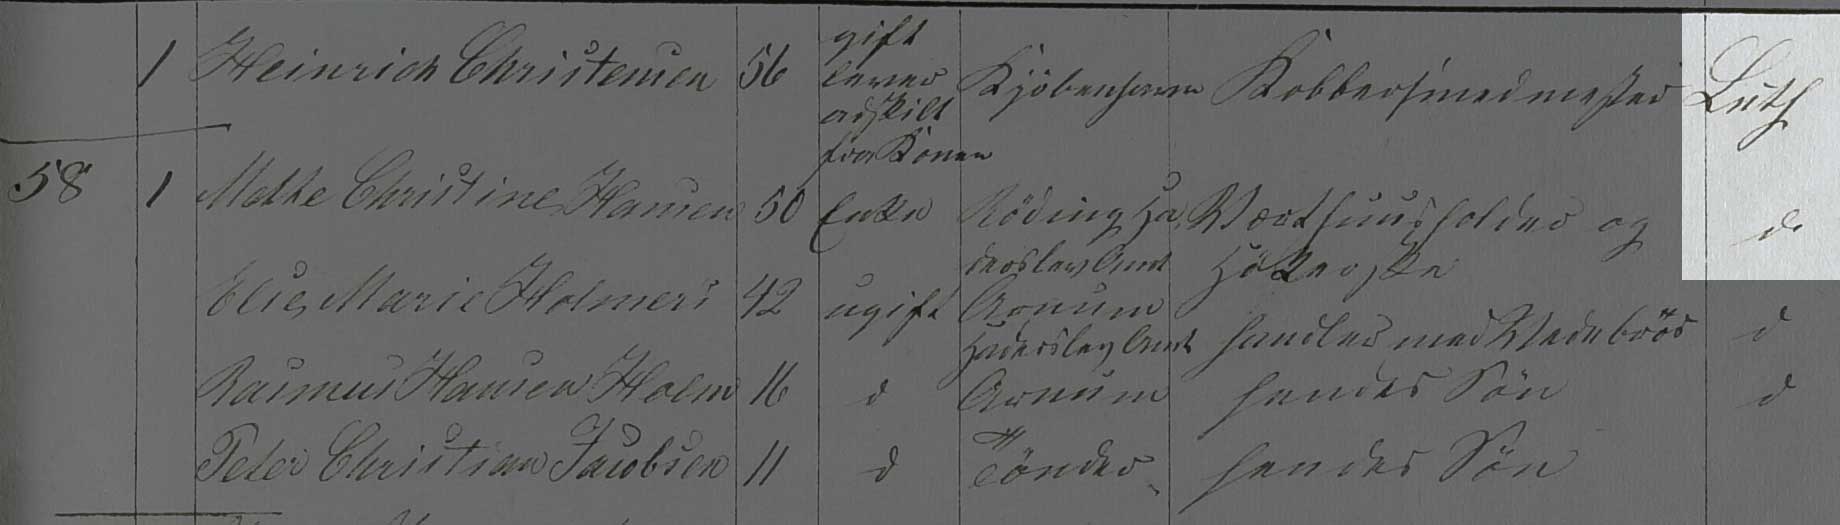 1 Heinrich Christensen 56 gift lever adskilt fra Konen Kjöbenhavn Kobbersmedmester Luth
58 1 Methe Christine Hansen 50 Enke Röding Haderslev Amt Værthuusholder og Hökerske d.
Elie Marie Holmers 42 ugift Arnum Haderslev Amt handler med Vedebröd d
Rasmus Hansen Holm 16 d Arnum hendes Sön d
Peter Christian Jacobsen 11 d Tönder hendes Sön